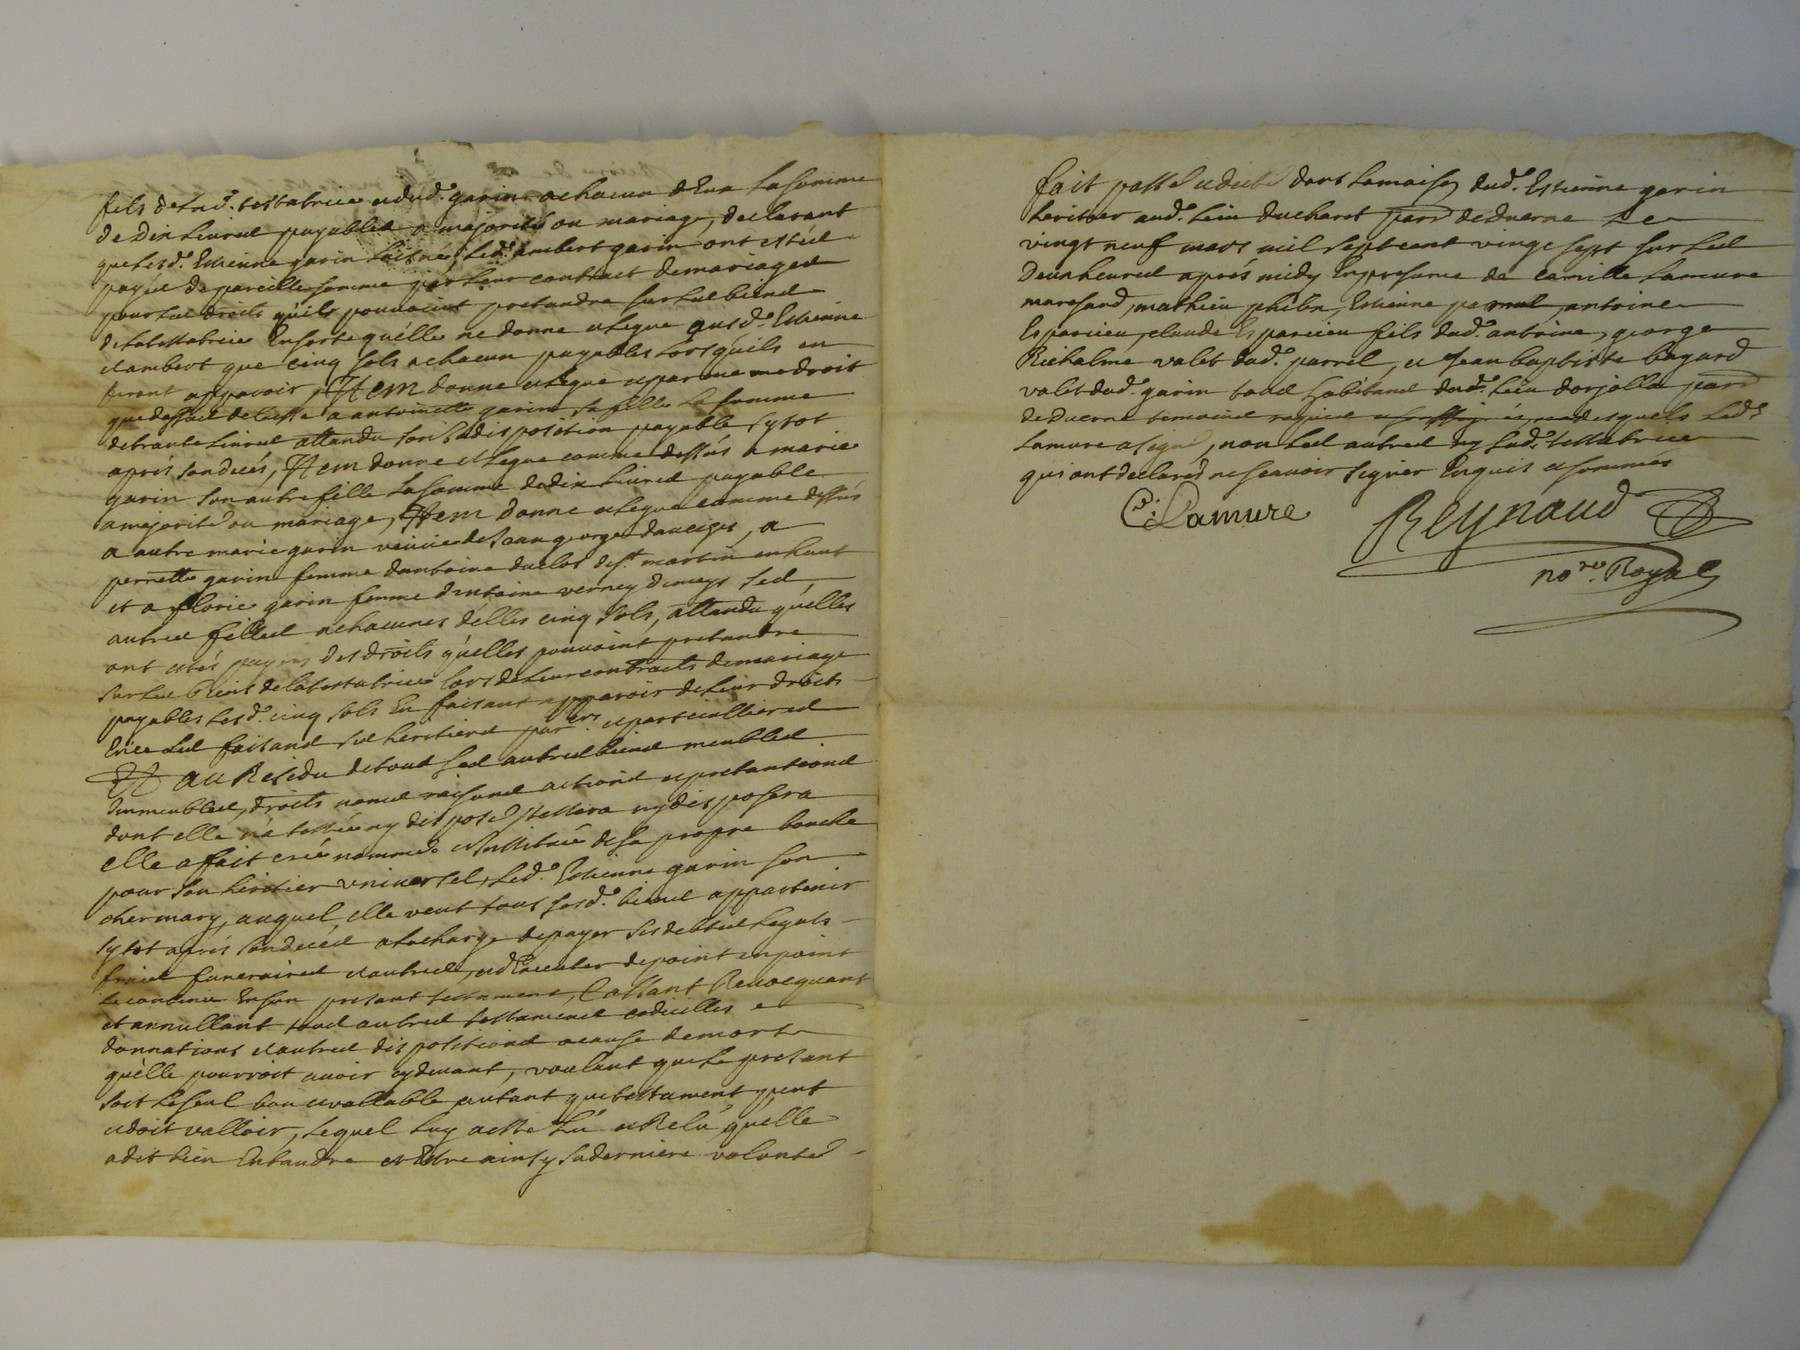 fils de lad.e testatrice et dud.t garin a chacun d'Eux la somme
de Dix livres payables a majorité ou mariage, declarant
que lesd.t Estienne garin laisné, et led.t ambert garin ont estés
payés de pareille somme par leur contract de mariages
pour les droits qu'ils pouvoient pretandre sur les biens
de la testatrice Ensorte qu'elle ne donne et legue ausd.t Estienne
et ambert que cinq sols a chacun payables lorsquils en
feront apparoir, Item donne et legue et par mesme droit
que dessus delaisse a antoinette garin sa fille la somme
de trante livres attandu son Indisposition payable sytot
aprés son decés, Item donne et legue comme dessus a marie
garin son autre fille la somme de dix livres payable
a majorité ou mariage, Item donne et legue comme dessus
a autre marie garin veuve de Jean george, a
pernette garin femme d'antoine duclos de s.t martin en haut
et a florie garin femme d'antoine verney de meys ses
autres filles a chacunes d'elles cinq sols, attandu qu'elles
ont estés payés des droits qu'elles pouvoint pretandre
sur les biens de la testatrice lors de leur contracts de mariage
payables lesd.t cinq sols En faisant apparoir de leur droits
En ce les faisand ses heritiers par.ers et particulliers
Et au Residu de tous ses autres biens meubles
Immeubles, droits noms raisons actions et pretantions
dont elle n'a testée ny disposé, testera ny disposera
elle a fait creé nommé et Instituée de sa propre bouche
pour son heritier universel, led.t Estienne garin son
cher mary, auquel elle veut tous sesd.t biens appartenir
sytot aprés son decés a la charge de payer ses debtes legats
frais funeraires et autres, et d'Executer de point en point
le contenu En son presant testament, Cassant Revocquant
et annullant tous autres testaments codicilles et
donnations et autres dispositions a cause de mort
qu'elle pourroit avoir cydevant, voulant que le presant
soit le seul bon et vallable autant que testament peut
et doit valloir, lequel luy a esté Lu et Relu qu'elle
a dit bien Entandre et Estre ainsy sa derniere volonté
fait passé et dicté dans la maison dud.t Estienne garin
heritier aud.t lieu ducharet parr.e de duerne Le
vingt neuf mars mil sept cent vingt sept sur les
Deux heures aprés midy En presance de camille Lamure
marchand, mathieu philbe, Estienne parrel, antoine
Esparcieu, claude Esparcieu fils dud.t antoine, george
Richalme valet dud.t parrel, et Jean baptiste bagard
valet dud.t garin tous habitans dud.t lieu parr.e
de duerne temoins requis desquels led.t
Lamure a signé, non les autres ny lad.e testatrice
qui ont declarés ne scavoir signer Enquis et sommés
C: Lamure
Reynaud
no.re Royal